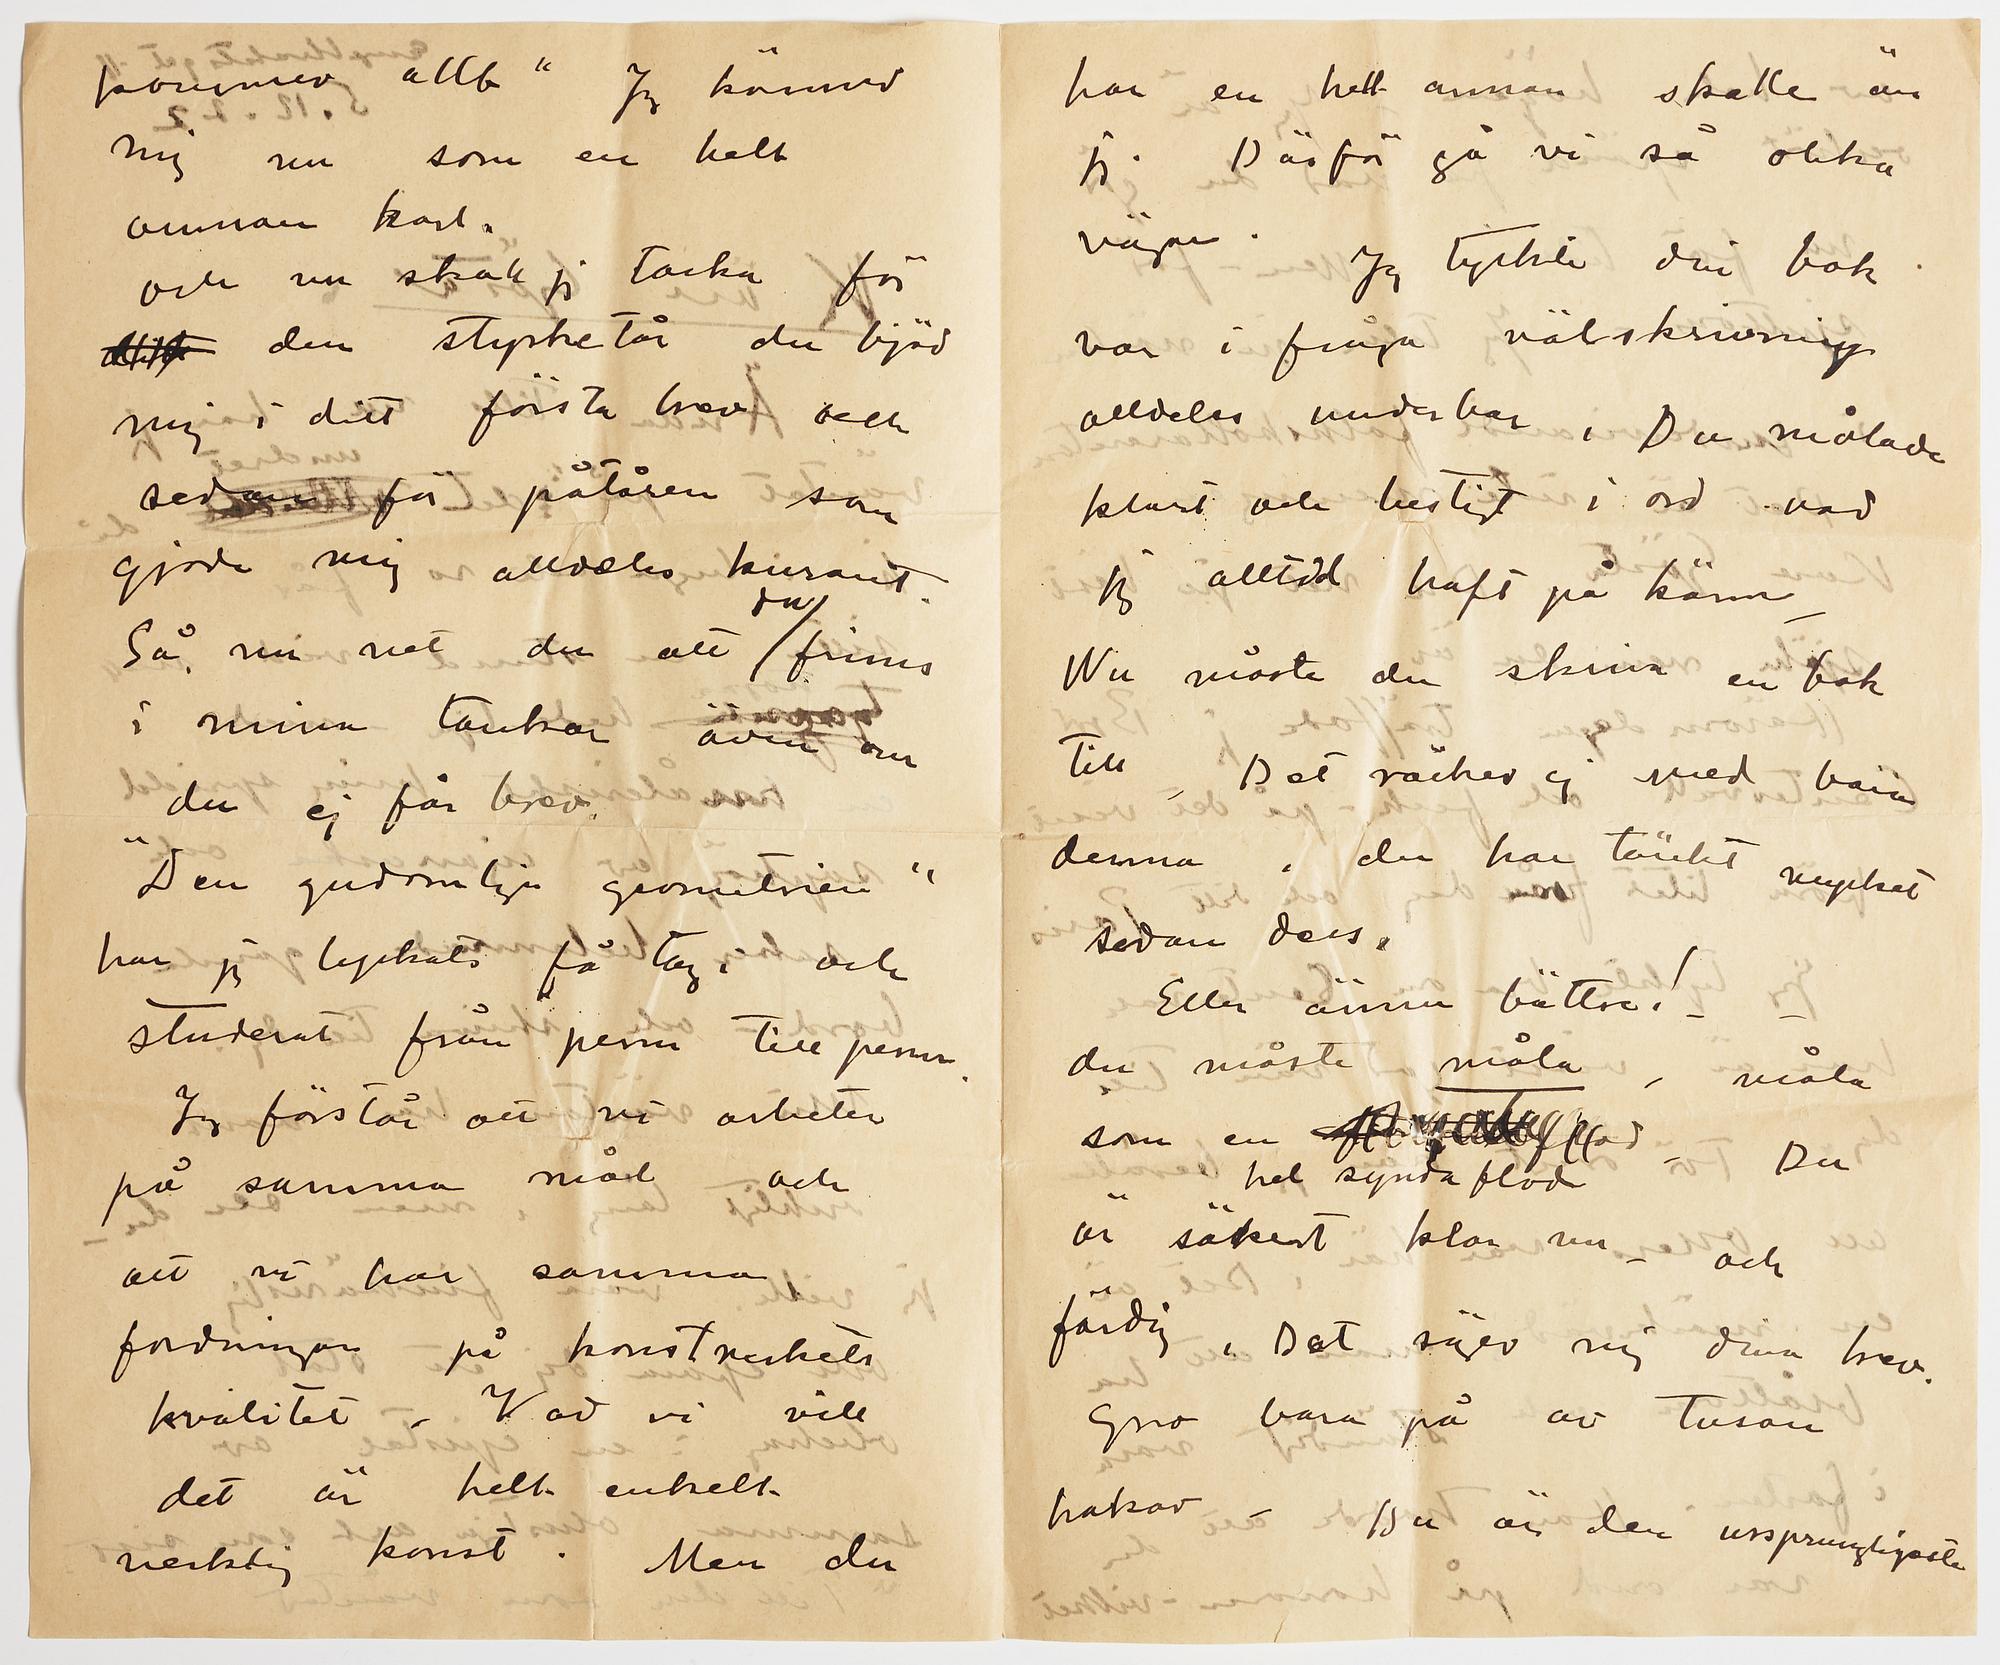 kommer allt" Jag känner
mig nu som en helt
annan karl.
och nu skall jg tacka för
den styrketår du bjöd
mig i ditt första brev och
sedan för påtåren som
gjorde mig alldeles kurant.
Så, nu vet du att du finns
i mina tankar även om
du ej får brev.
"Den gudomliga geometrien"
har jg lyckats få tag i och
studerat från perm till perm.
Jag förstår att vi arbetar
på samma mål — och
att vi har samma
fordringar på konstverkets
kvalitet. Vad vi vill
det är helt enkelt
verklig konst. Men du
har en helt annan skalle än
jg. Därför gå vi så olika
vägar. Jag tyckte din bok
var i fråga välskrivning
alldeles underbar. Du målade
klart och hestigt i ord vad
jg alltid haft på känn –
Nu måste du skriva en bok
till – Det räcker ej med bara
denna, du har tänkt mycket
sedan dess.
Eller ännu bättre! – –
du måste måla – måla
som en – Du
hel syndaflod
är säkert klar nu – och
färdig. Det säger mig dina brev.
Gno bara på av tusan
hakar – Du är den ursprungligaste